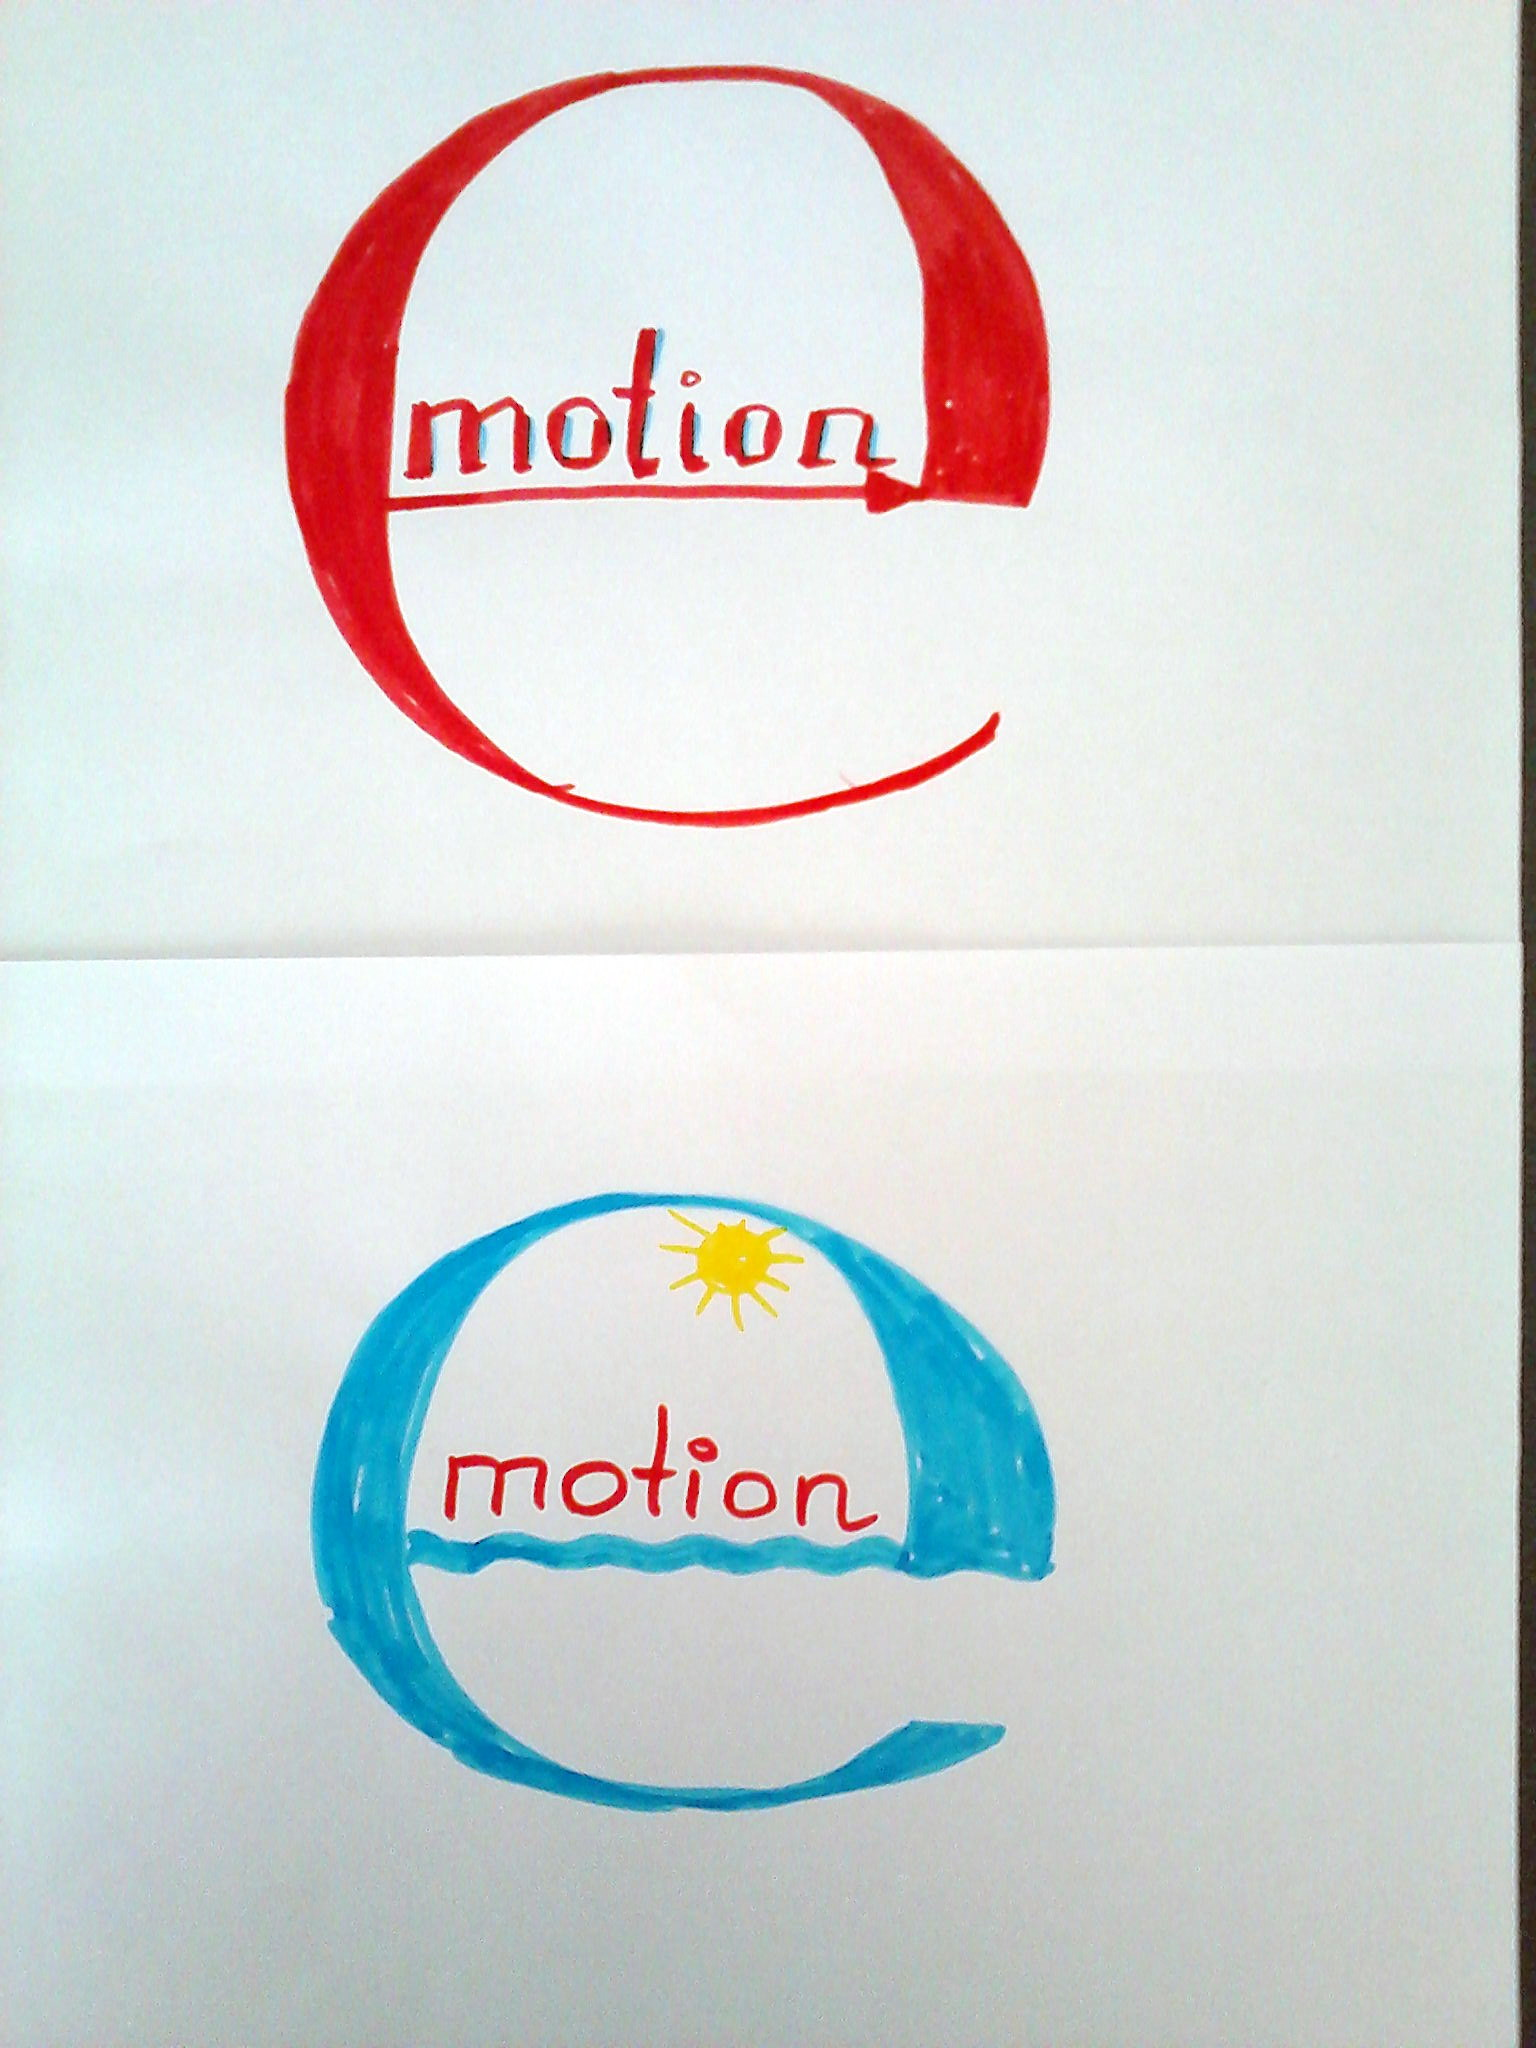 e
motion
e
motion